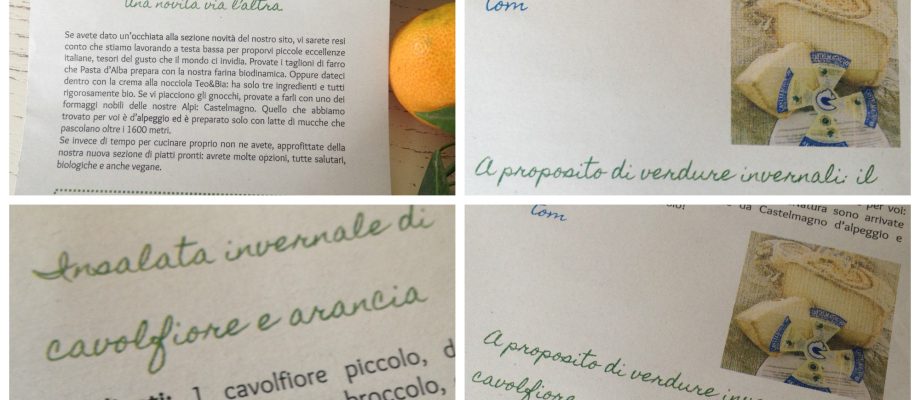 Una novità via l'altra
Se avete dato un'occhiata alla sezione novità del nostro sito, vi sarete resi
conto che stiamo lavorando a testa bassa per proporvi piccole eccellenze
italiane, tesori del gusto che il mondo ci invidia. Provate i taglioni di farro
che Pasta d'Alba prepara con la nostra farina biodinamica. Oppure dateci
dentro con la crema alla nocciola Teo&Bia: ha solo tre ingredienti e tutti
rigorosamente bio. Se vi piacciono gli gnocchi, provate a farli con uno dei
formaggi nobili delle nostre Alpi: Castelmagno. Quello che abbiamo
trovato per voi è d'alpeggio ed è preparato solo con latte di mucche che
pascolano oltre i 1600 metri.
Se invece di tempo per cucinare proprio non ne avete, approfittate della
nostra nuova sezione di piatti pronti: avete molte opzioni, tutte salutari,
biologiche e anche vegane.
Tom
A proposito di verdure invernali: il
Insalata invernale di
cavolfiore e arancia
1 cavolfiore piccolo,
broccolo,
per voi:
sono arrivate
Castelmagno d'alpeggio e
Tom
A proposito di verdure
cavolfiore